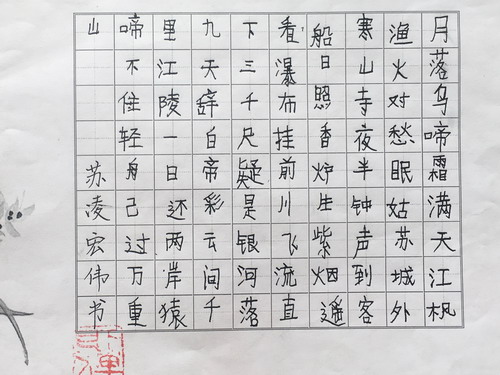 月落乌啼霜满天江枫
渔火对愁眠姑苏城外
寒山寺夜半钟声到客
船日照香炉生紫烟遥
看瀑布挂前川飞流直
下三千尺疑是银河落
九天辞白帝彩云间千
里江陵一日还两岸猿
啼不住轻舟己过万重
山 苏凌宏伟书